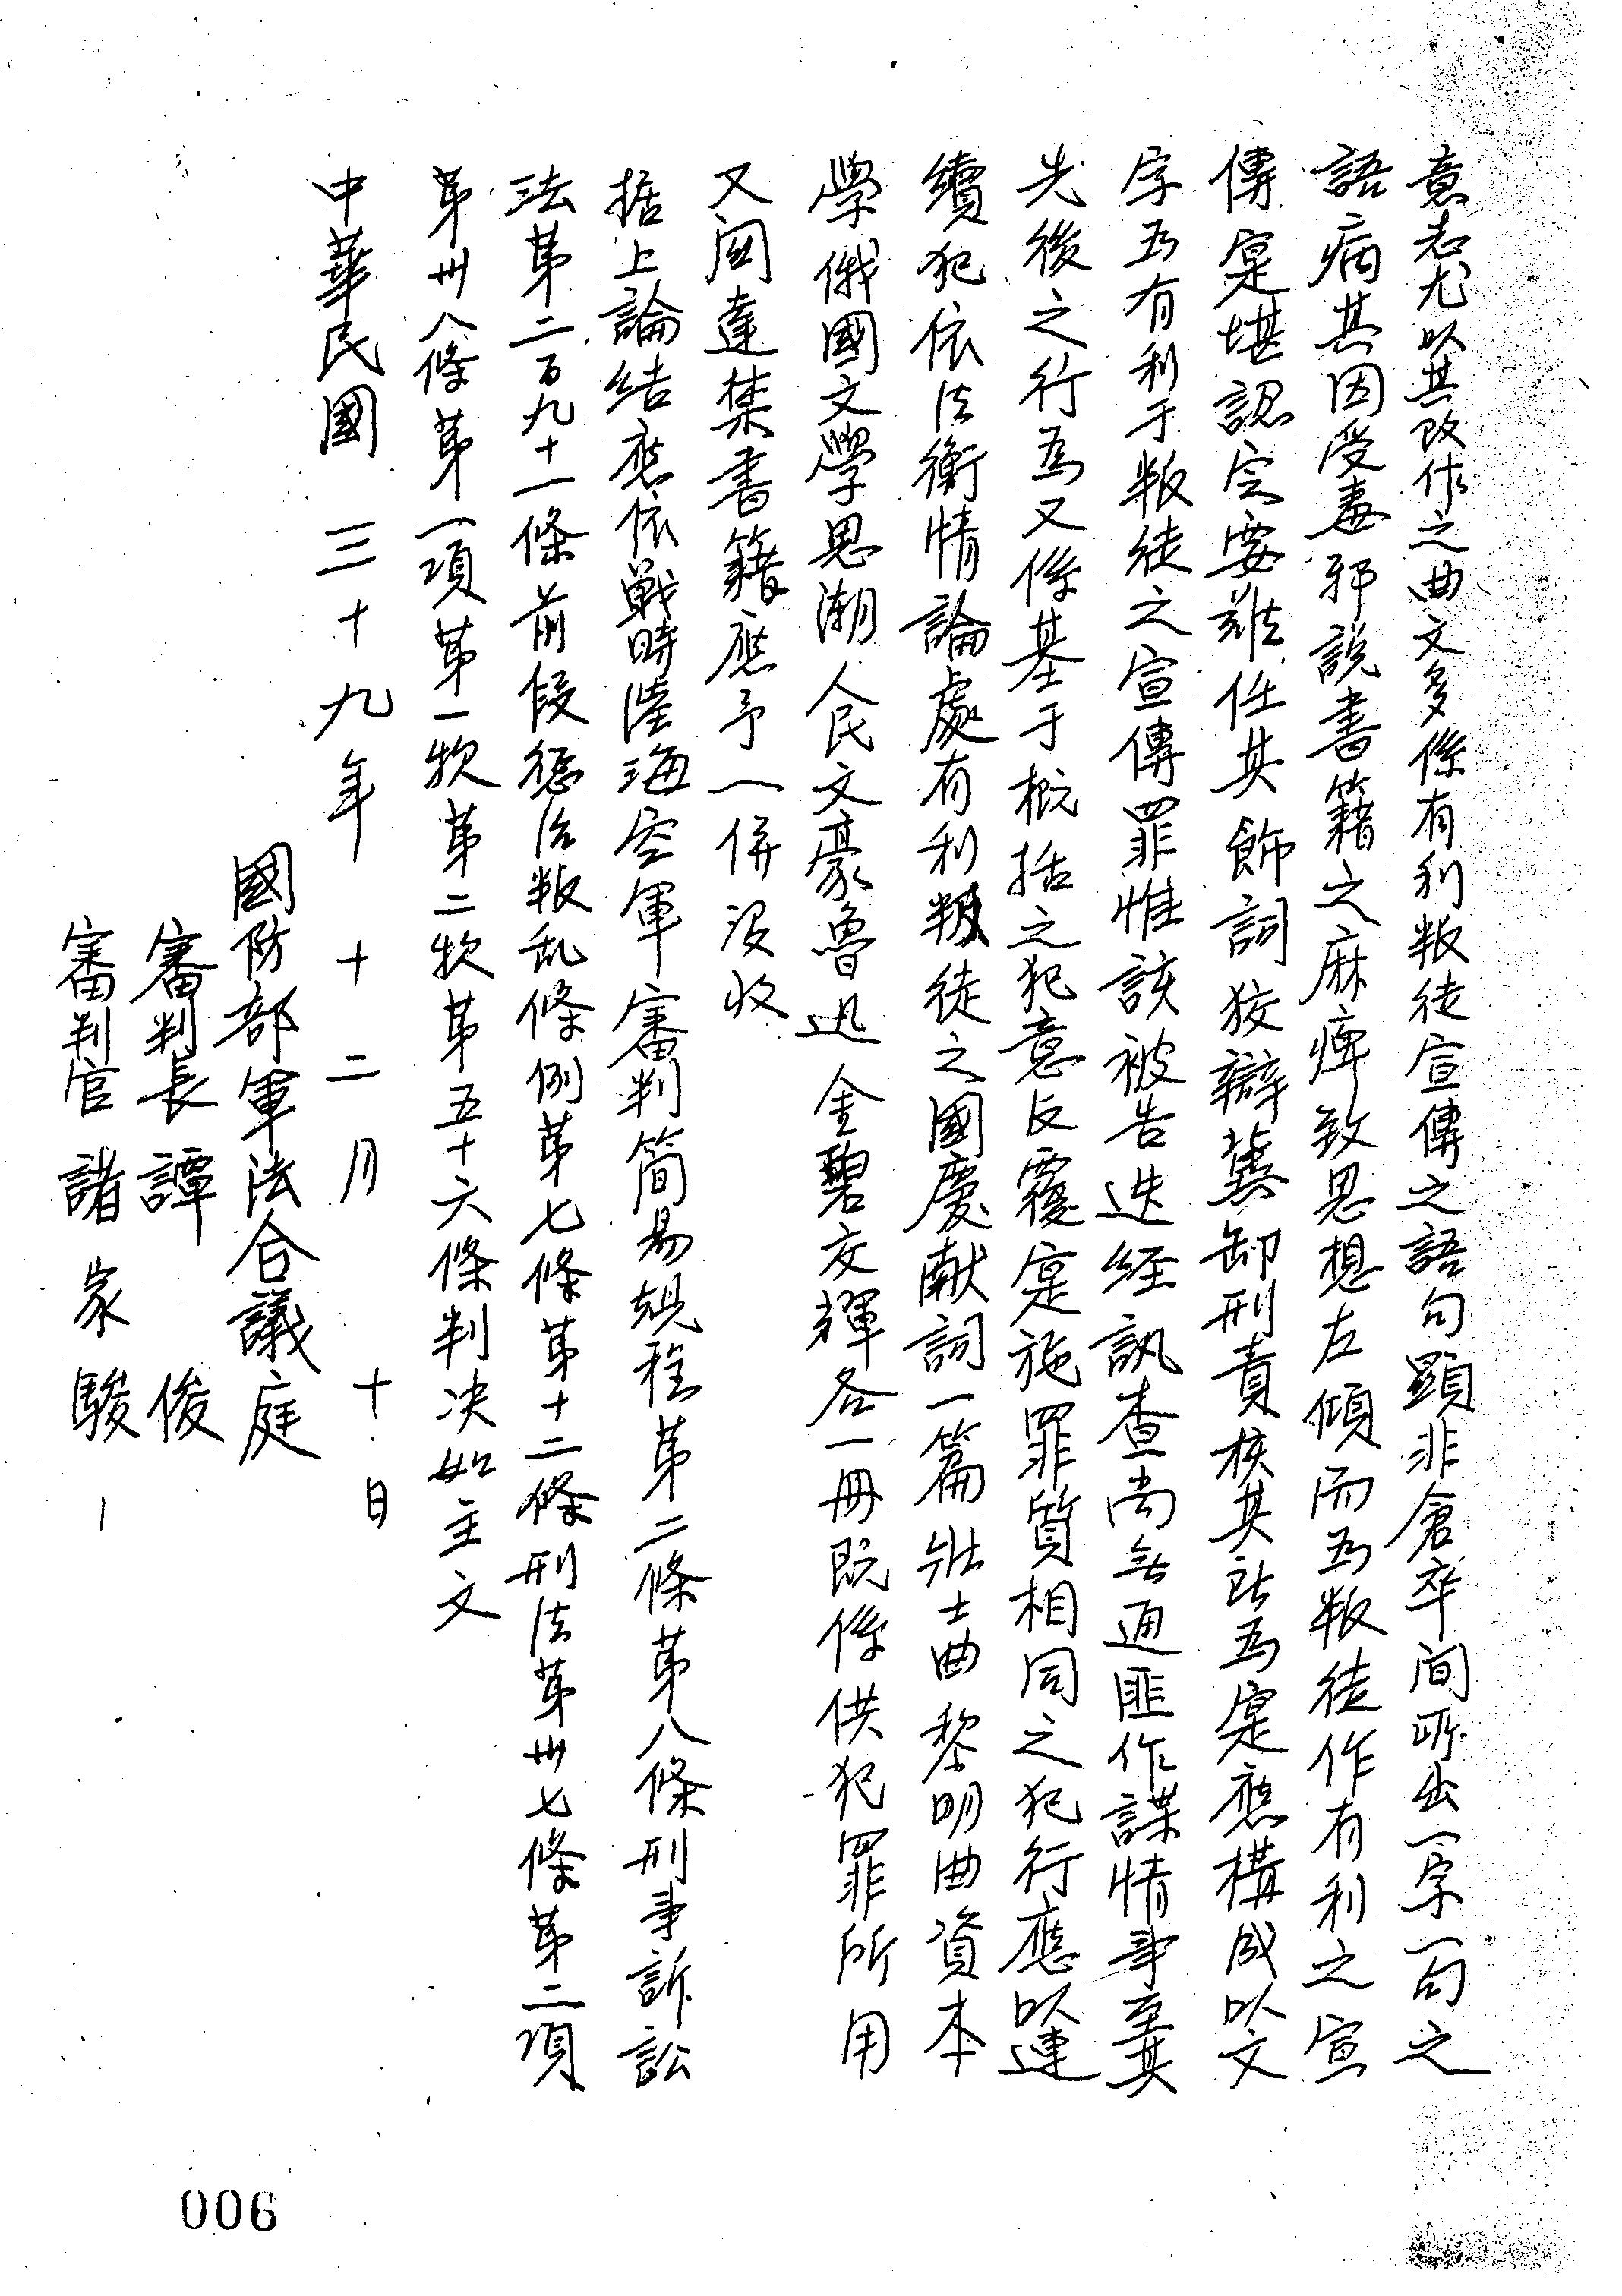 意志尤以其改作之曲文多係有利叛徒宣傳之語句顯非倉卒間所出一字一句之
語病其因受毒邪說書籍之麻痺致思想左傾而為叛徒作有利之宣
傳寔堪認定要難任其飾詞狡辯冀卸刑責核其所為寔應構成以文
字為有利于叛徒之宣傳罪惟該被告迭經訊查尚無通匪作謀情事其
先後之行為又係基于概括之犯意反覆寔施罪質相同之犯行應以連
續犯依法衡情論處有利叛徒之國慶獻詞一篇壯士曲黎明曲資本
學俄國文學思潮人民文豪魯迅金碧交輝各一冊既係供犯罪所用
又関違禁書籍應予一併沒收
据上論結應依戰時陸海空軍審判简易規程第二條第八條刑事訴訟
法第二百九十一條前段懲治叛乱條例第七條第十二條刑法第卅七條第二項
第卅八條第一項第一欵第二欵第五十六條判決如主文
中華民國三十九年十二月十日
國防部軍法合議庭
審判長譚俊
審判官諸家駿
006